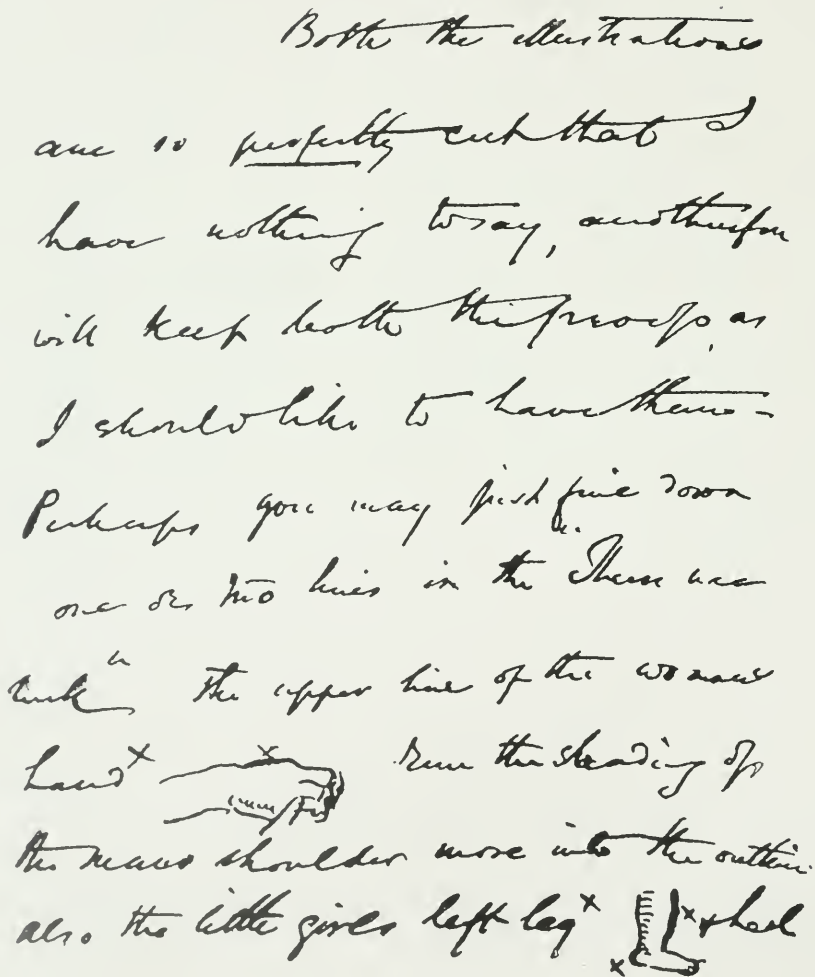 Both the illustrations
are so perfectly cut that I
have nothing to say, and therefore
will keep both the proofs, as
I should like to have them -
Perhaps you may just fine down
one or two lines in the "There was
luck" The upper line of the womans
hand x x Run the shading of
the mans shoulder more into the outline
also the little girls left leg x x x & heel